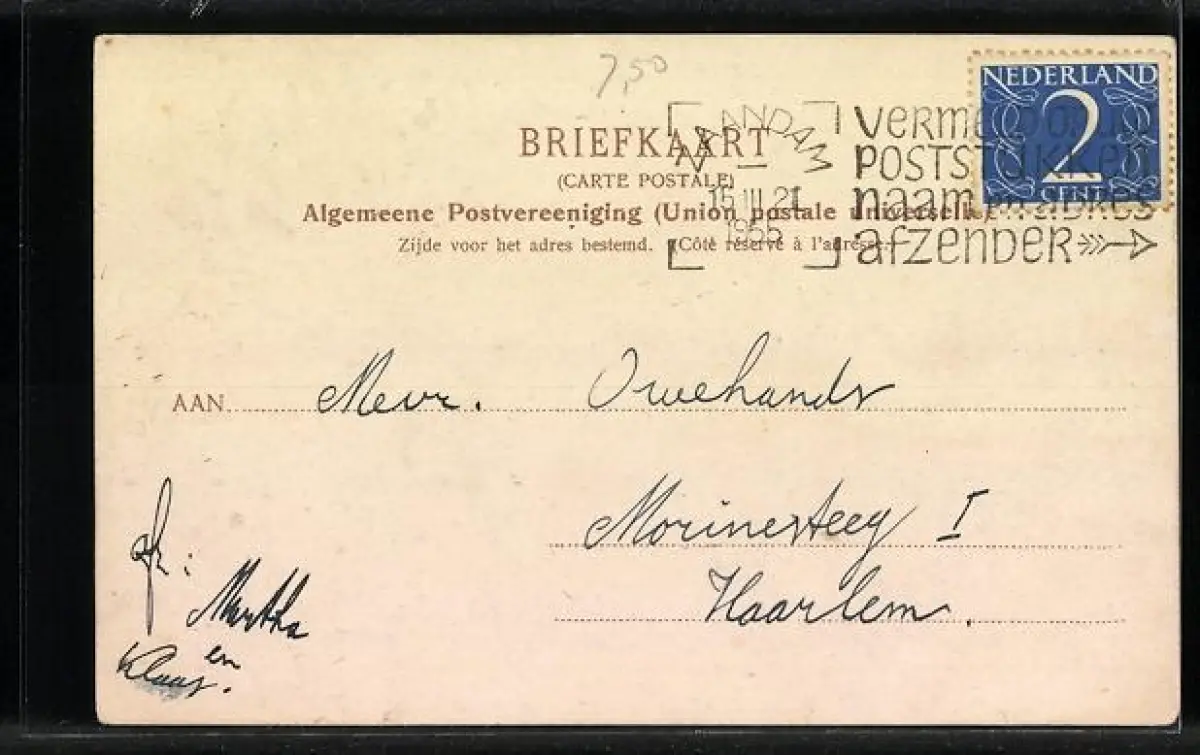 7,50
NEDERLAND
2
CENT
ZAANDAM
15 III 21
1955
VERMELD OP UW
POSTSTUKKEN
naam en adres
afzender
BRIEFKAART
(CARTE POSTALE)
Algemeene Postvereeniging (Union postale universelle)
Zijde voor het adres bestemd. (Côté réservé à l'adresse.
AAN Mevr. Ouwehands
Morinesteeg I
Haarlem.
afz:
Martha
en
Klaas.